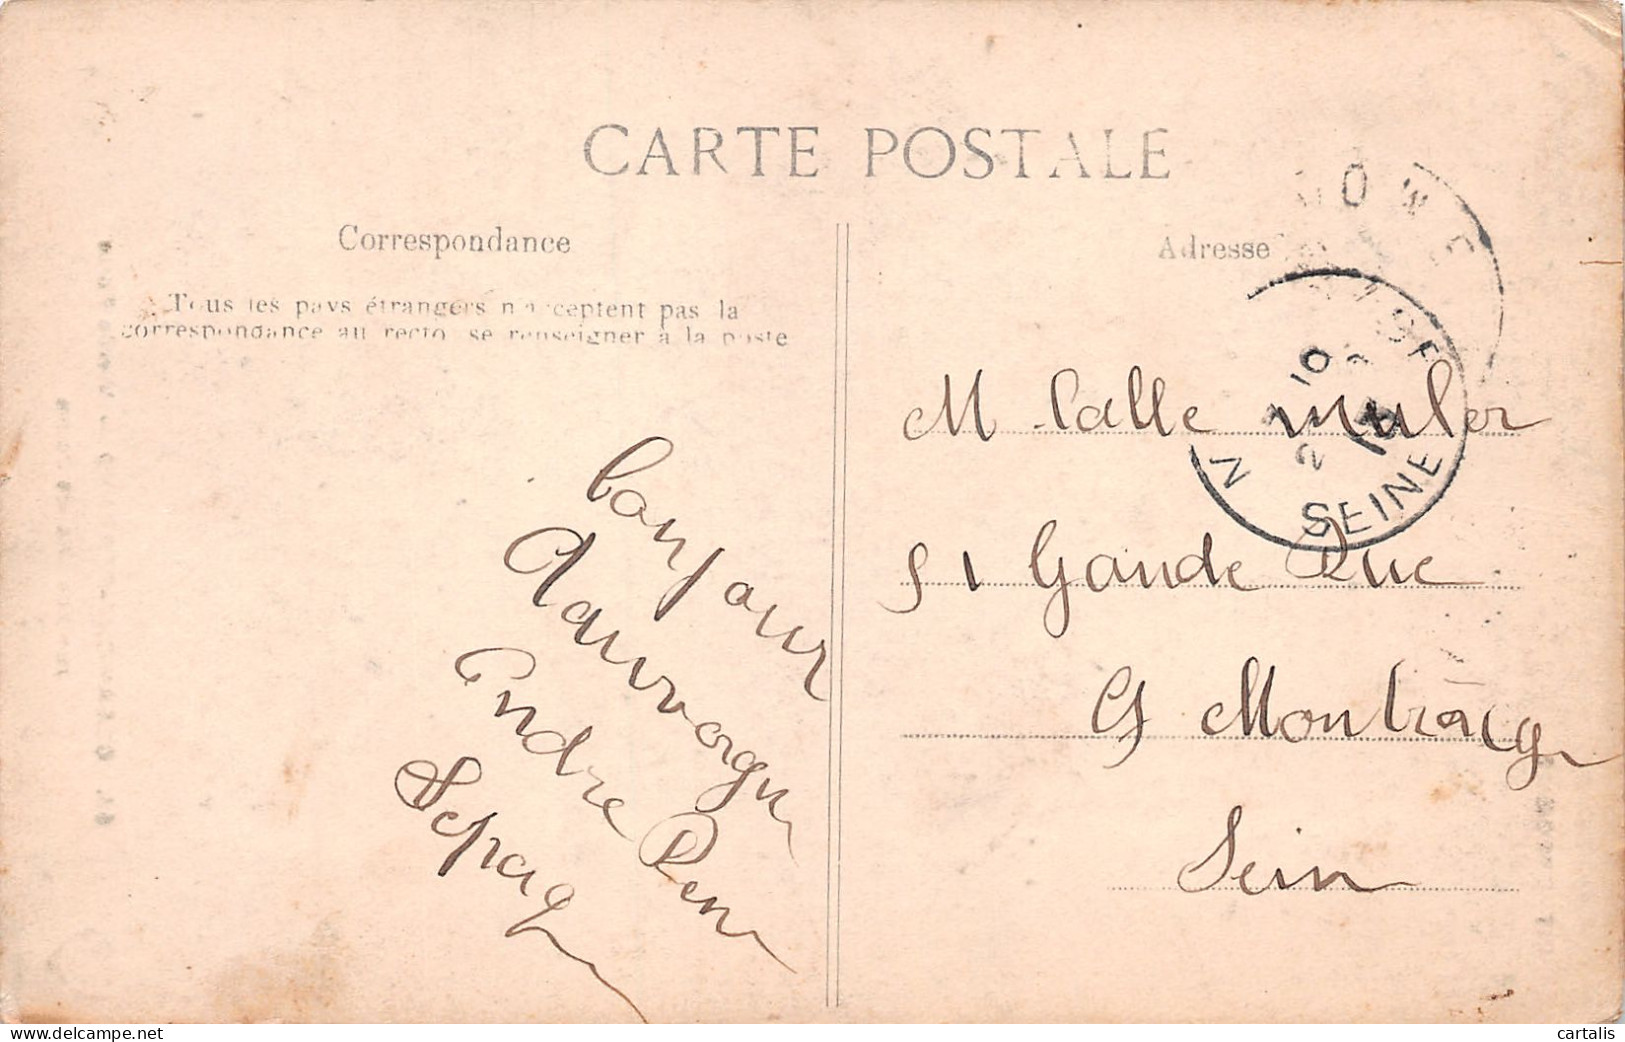 CARTE POSTALE
Correspondance
Tous les pays étrangers n'acceptent pas la
correspondance au recto, se renseigner à la poste
bonjour
Andre
Lepage
Adresse
M Calle muler
51 Gande Rue
Montroug
Sein
SEINE
cartalis
www.delcampe.net